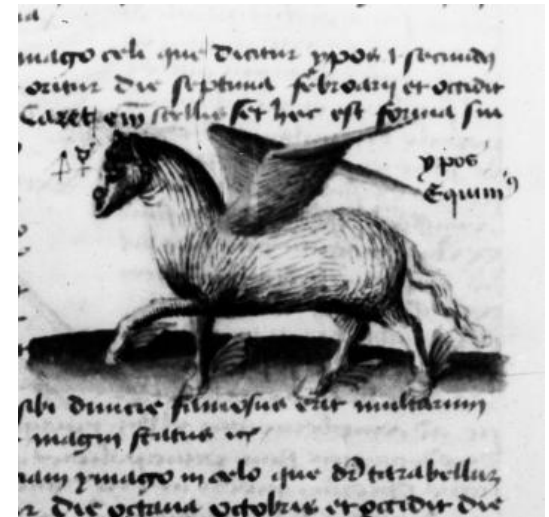 ymago celi que dicitur ypos 1 secundū
oritur die septima februarij et occidit
Caret em̄ stellis set hec est forma sui
ypos
Equim⁹
sibi famosus erit multarum
magni status
ymago in celo que dr̄ tarabellum
die octaua octobris et occidit die